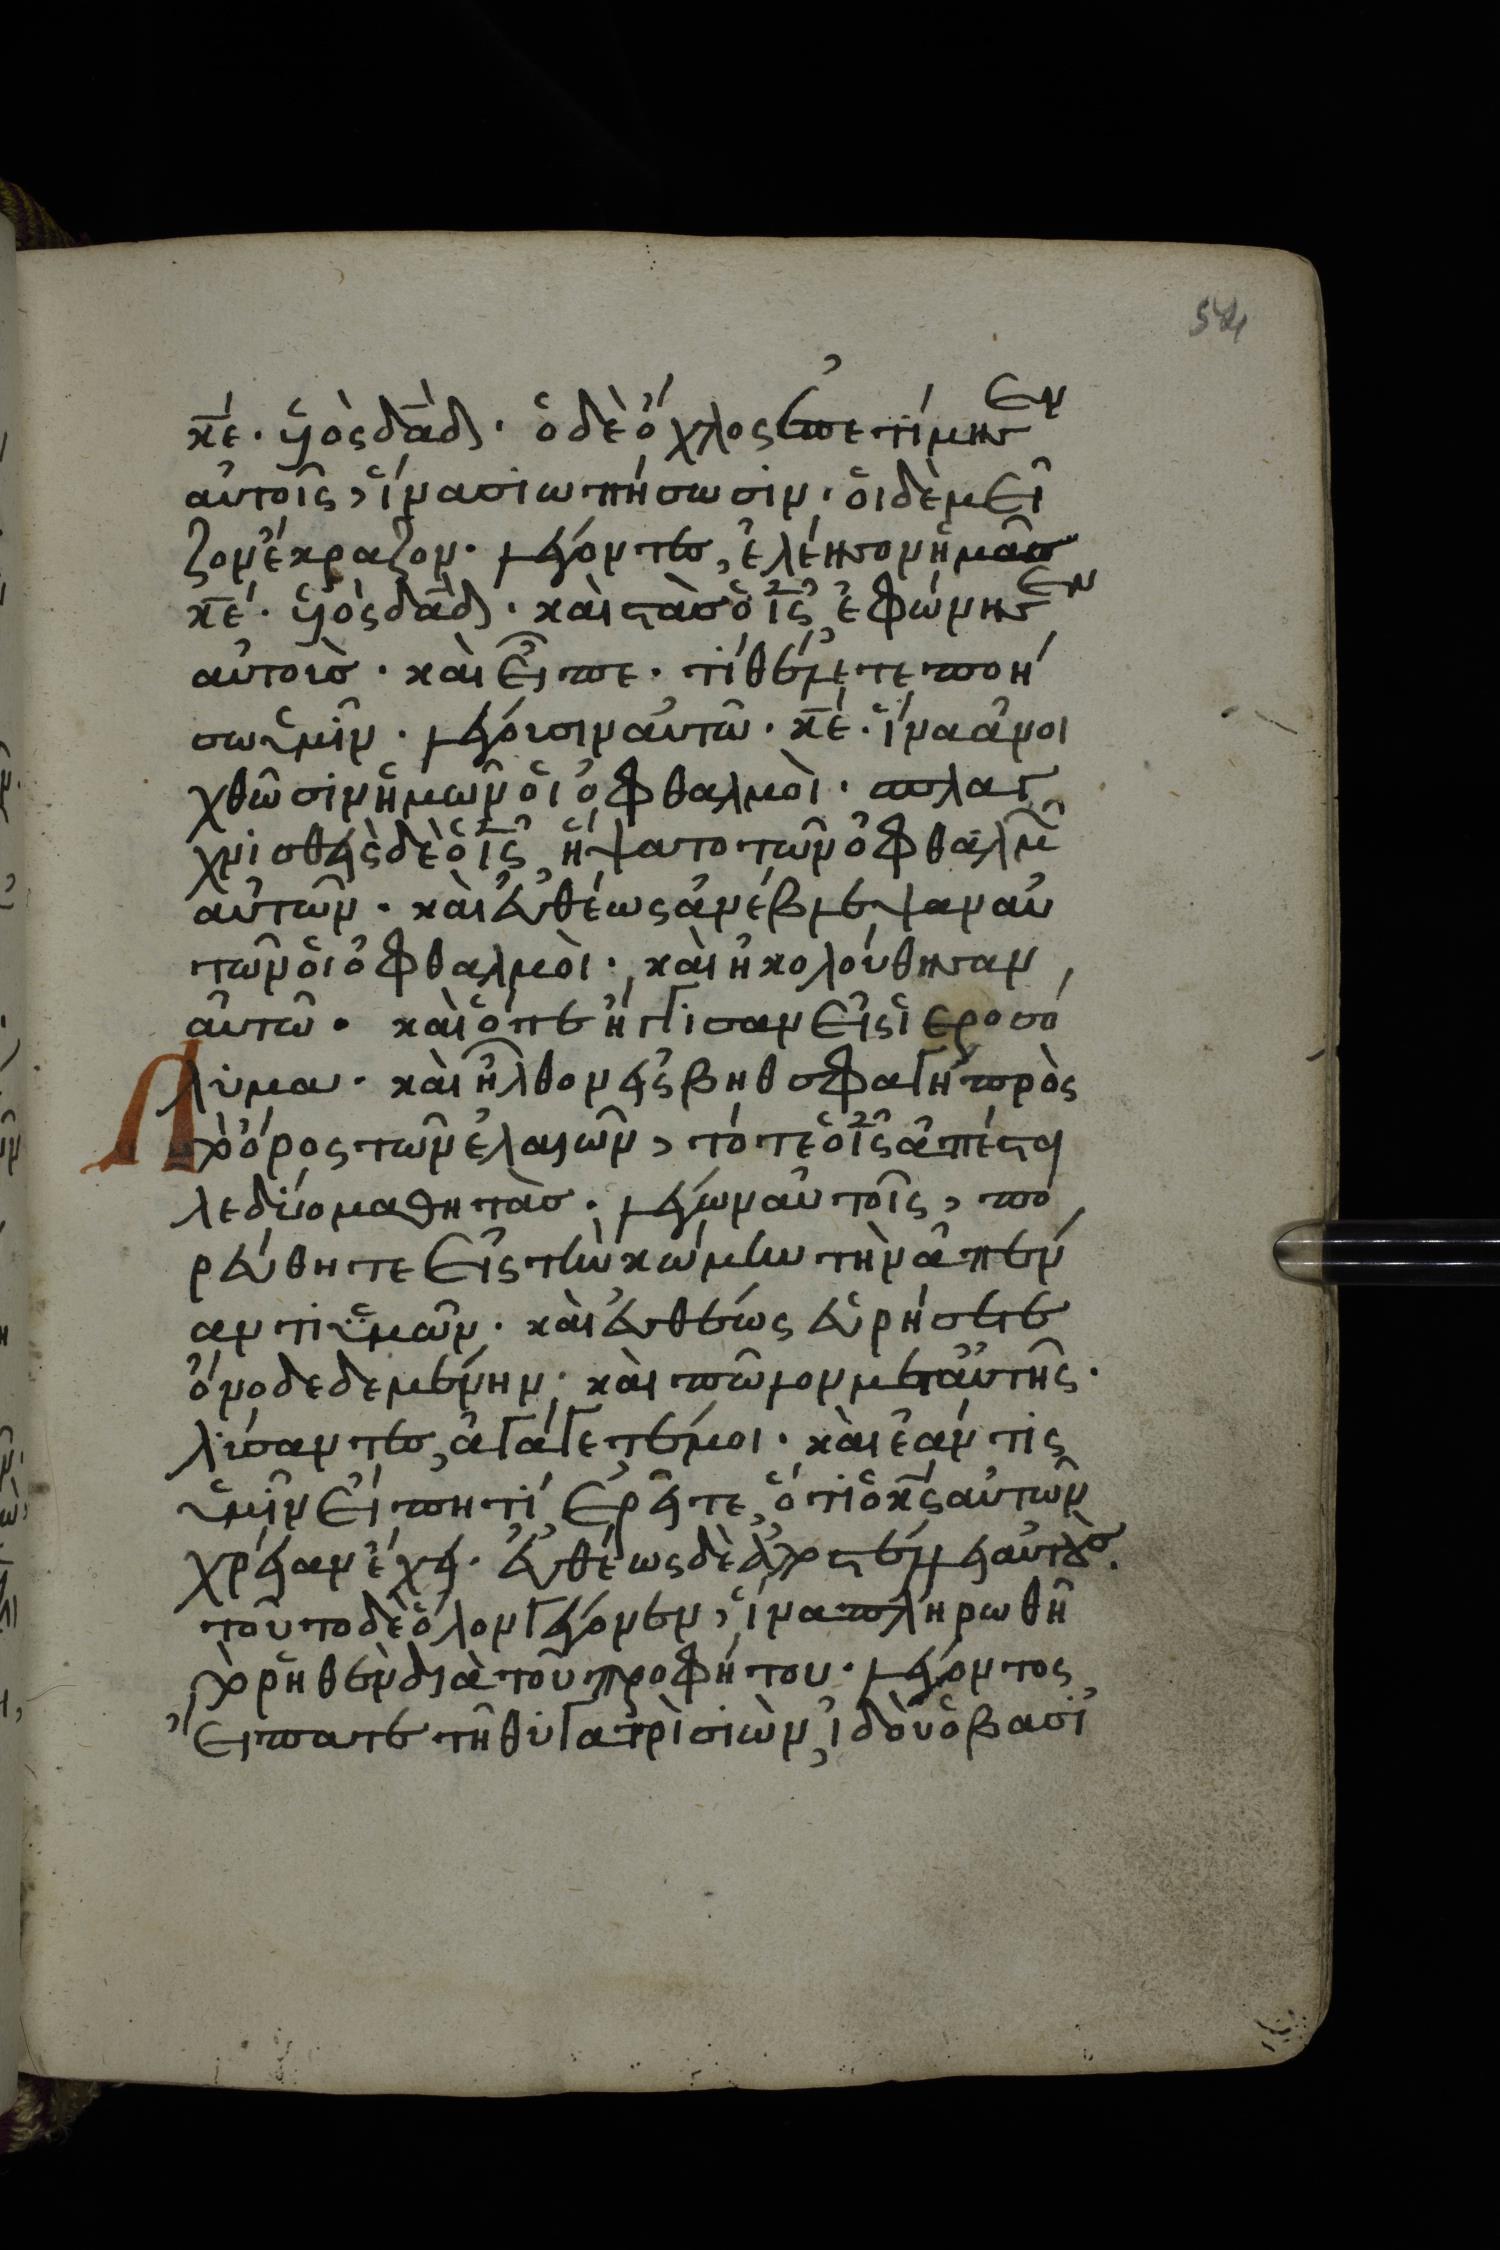 54
κ̅έ. ὑϊὸς δα̅δ̀. ὁ δὲ ὄχλος ἐπετίμησεν
αὐτοῖς, ἵνα σιωπήσωσιν. ὁι δὲ μεῖ
ζον ἔκραζον. λέγοντες, ἐλέησον ἡμᾶσ
κ̅έ. ὑϊὸς δα̅δ̀. καὶ στὰσ ὁ ι̅ς̅, ἐφώνησεν
αὐτοισ̀. καὶ εἶπε. τί θέλετε ποιή
σω ὑμῖν. λέγουσιν αὐτῶ. κ̅έ. ἵνα ἀνοι
χθῶσιν ἡμῶν ὁι ὀφθαλμὸι. σπλαγ
χνισθεὶς δὲ ὁ ι̅ς̅, ἥψατο τῶν ὀφθαλμῶν
αὐτῶν. καὶ ἐυθέως ἀνέβλεψαν αὐ
τῶν ὁι ὀφθαλμὸι. καὶ ἠκολούθησαν
αὐτῶ. καὶ ὅτε ἤγγισαν εἰς ἱεροσό
λυμα. καὶ ἦλθον εἰς βηθσφαγὴ πρὸς
τὸ ὄρος τῶν ἐλαιῶν, τότε ὁ ι̅ς̅ ἀπέστει
λε δύο μαθητὰσ. λέγων αὐτοῖς, πο
ρεύθητε εἰς τὴν κώμην τὴν ἀπέν
αντι ὑμῶν. καὶ ἐυθέως ἑυρήσετε
ὄνο δεδεμένην. καὶ πῶλον μετ' αὐτῆς.
λύσαντες, ἀγάγετέ μοι. καὶ ἐάν τις
ὑμῖν εἴπη τί, ἐρεῖτε, ὅτι ὁ κ̅ς̅ αὐτῶν
χρείαν ἔχει. ἐυθέως δὲ ἀποστέλλει αὐτοὺσ.
τοῦτο δὲ ὅλον γέγονεν, ἵνα πληρωθῆ
τὸ ῥηθὲν διὰ τοῦ προφήτου. λέγοντος
εἴπατε τῆ θυγατρὶ σιὼν, ἰδοὺ ὁ βασι